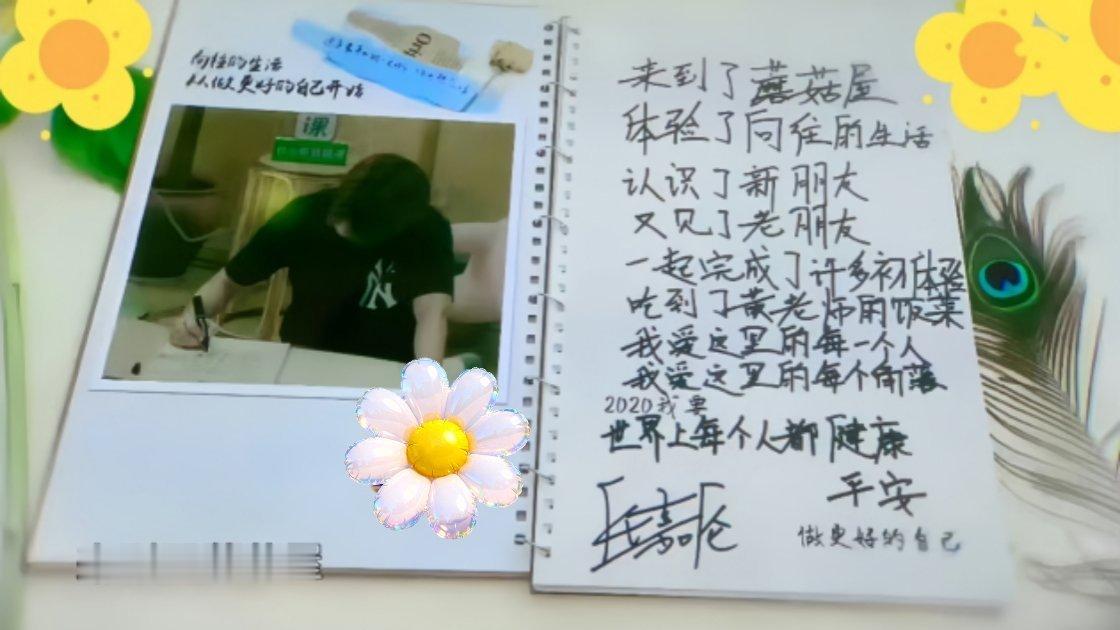 向往的生活
从做更好的自己开始
课
NY
来到了蘑菇屋
体验了向往的生活
认识了新朋友
又见了老朋友
一起完成了许多初体验
吃到了黄老师的饭菜
我爱这里的每一个人
我爱这里的每个角落
2020我要
世界上每个人都健康
平安
做更好的自己